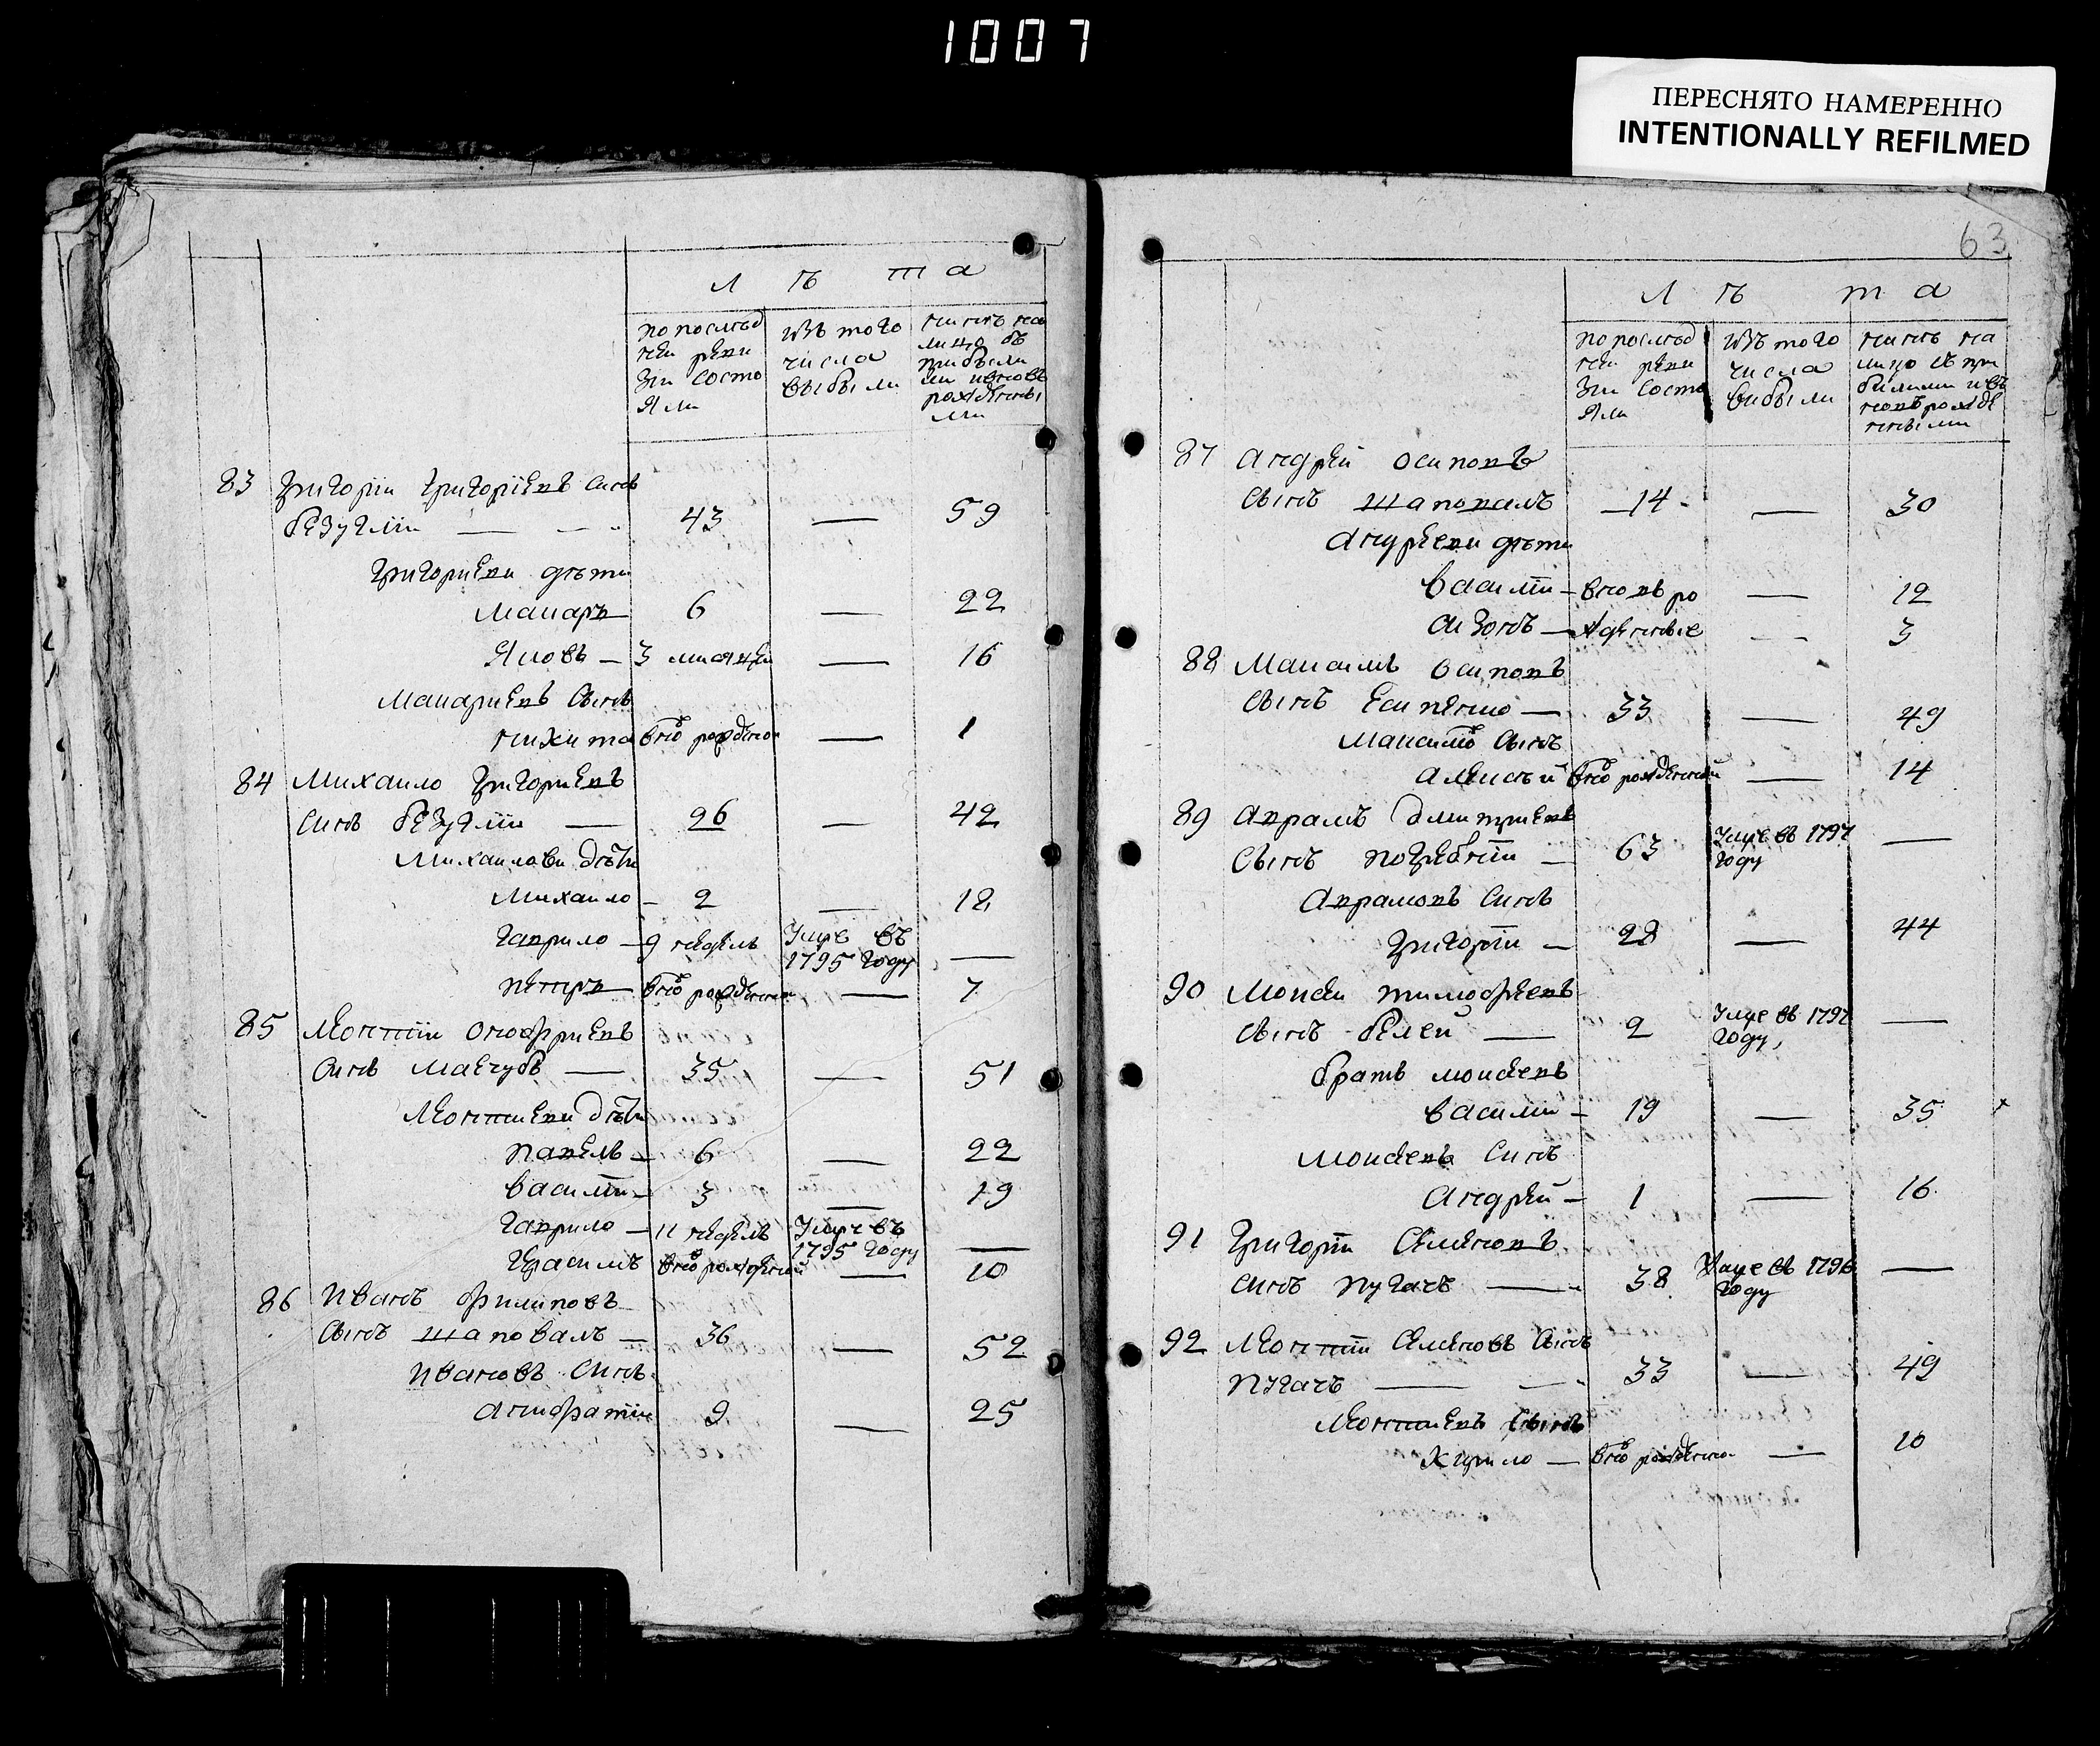 1007
ПЕРЕСНЯТО НАМЕРЕННО
INTENTIONALLY REFILMED
Л ѣ т а
по послѣд
ней реви
зіи состо
яли
изъ того
числа
выбыли
нынѣ на
лицо съ
прибыли
ми и вновь
рожденны
ми
83 Григорій Григоріевъ сынъ
безуглій — 43 — 59
Григориеви дѣти
Макаръ 6 — 22
Яковъ — 3 мисяцей — 16
Макариевъ сынъ
никита внѡ рожденой — 1
84 Михаило Григориевъ
сынъ безуглій — 26 — 42
Михаилови дѣти
Михаило — 2 — 18
гаврило — 9 недель умре въ
1795 году —
петръ — внѡ рожденни — 7
85 Леонтій онофриевъ
сынъ Мавчубъ — 35 — 51
Леонтиеви дѣти
павелъ — 6 — 22
василій — 3 — 19
гаврило — 11 недель умре въ
1795 году —
герасимъ внѡ рожденній — 10
86 иванъ филиповъ
сынъ шаповалъ — 36 — 52
ивановъ сынъ
ануфратій 9 — 25
63
Л ѣ т а
по послѣд
ней реви
зіи состо
яли
изъ того
числа
выбыли
нынѣ на
лицо съ при
былими и въ
новъ рожде
нными
87 андрей осиповъ
сынъ шаповалъ — 14 — 30
андреевы дѣти
василій — вновь ро — 12
сизонъ — жденные — 3
88 Максимъ осиповъ
сынъ есипенко — 33 — 49
Максимѡ сынъ
алексѣй внѡ рожденній — 14
89 аврамъ дмитриевъ
сынъ погребній — 63 умре въ 1797
году —
аврамовъ сынъ
григорій — 28 — 44
90 Моисей тимофеевъ
сынъ белей — 2 умре въ 1797
году, —
братъ моисеевъ
василий — 19 — 35
моисеевъ сынъ
андрей — 1 — 16
91 григорій семеновъ
сынъ пугачъ — 38 умре въ 1796
году —
92 Леонтій семеновъ сынъ
пугачъ — 33 — 49
Леонтиевъ сынъ
кирило — внѡ рожденно — 10